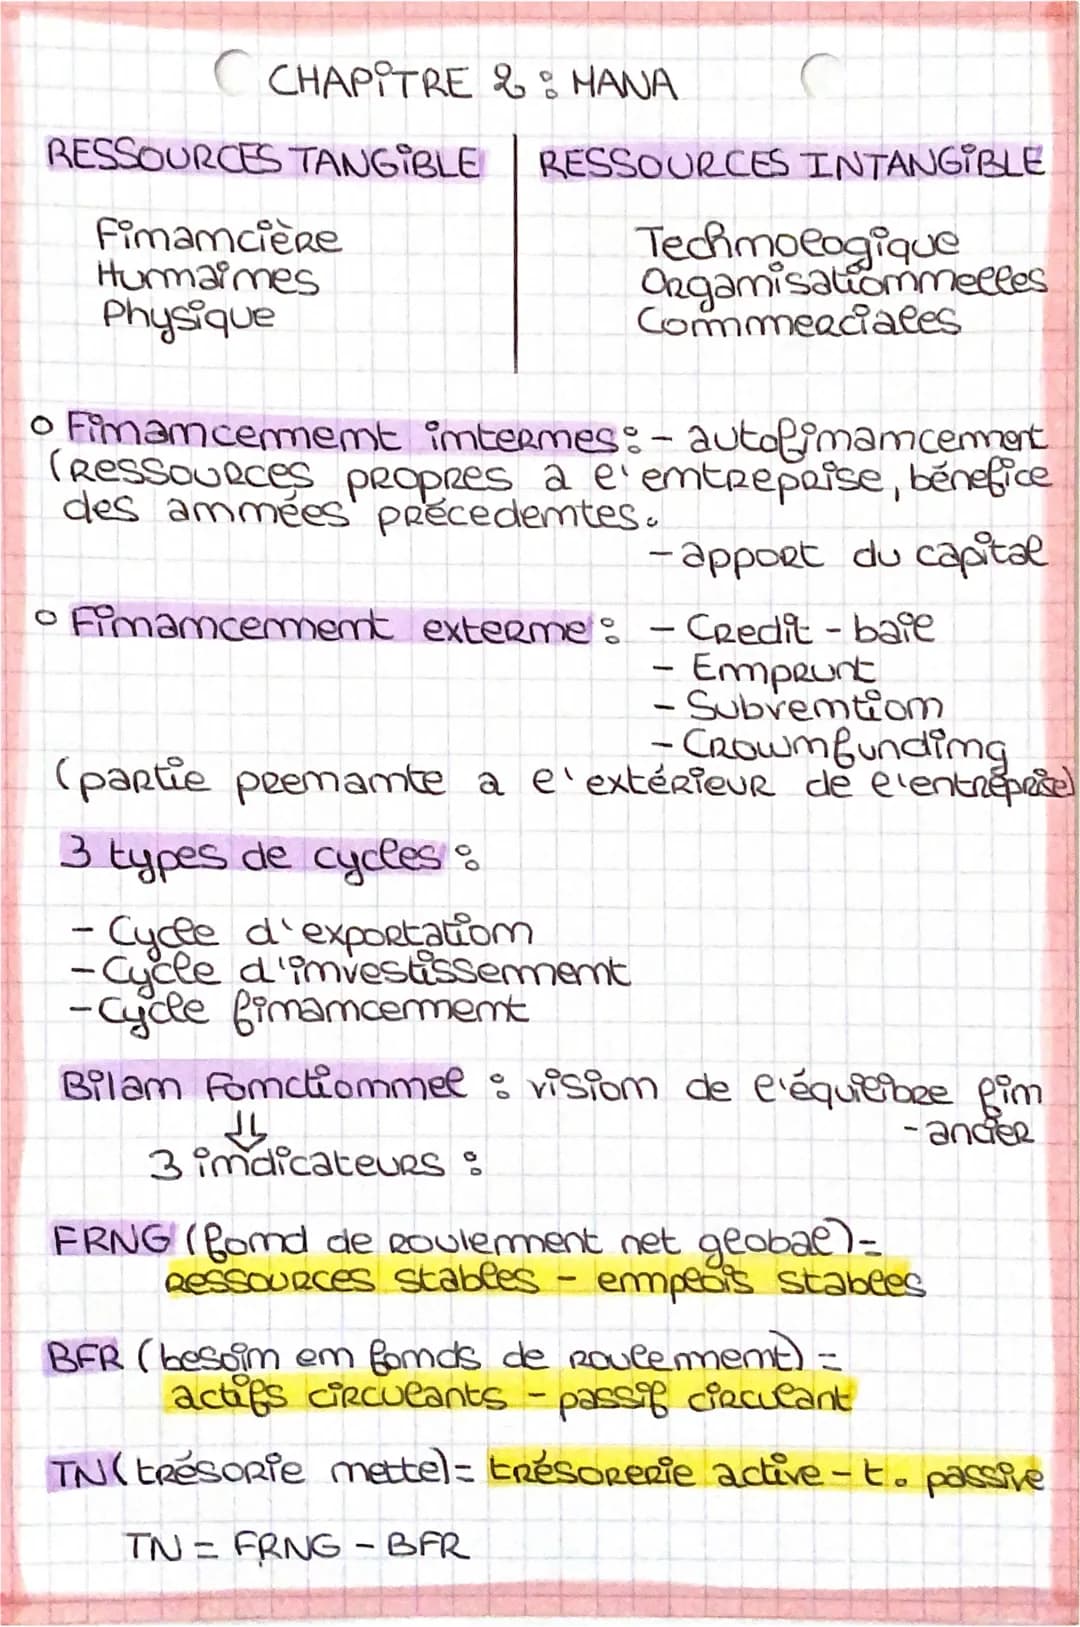 CHAPITRE 2 : MANA
RESSOURCES TANGIBLE
Financière
Humaines
Physique
RESSOURCES INTANGIBLE
Technologique
Organisationnelles
Commerciales
o Financement internes : - autofinancement
(RESSOURCES propres a l'entreprise, bénefice
des années précedentes.
- apport du capital
o Financement externe : - Credit - bail
- Emprunt
- Subvention
- Crownfunding
(partie prenante a l'extérieur de l'entreprise)
3 types de cycles :
- Cycle d'exportation
- Cycle d'investissement
- Cycle financement
Bilan Fonctionnel : vision de l'équilibre fin
- ancier
⇓
3 indicateurs :
FRNG (fond de roulement net global) =
RESSOURCES stables - emplois stables
BFR (besoin en fonds de roulement) =
actifs circulants - passif circulant
TN (trésorie nette) = trésorerie active - t. passive
TN = FRNG - BFR